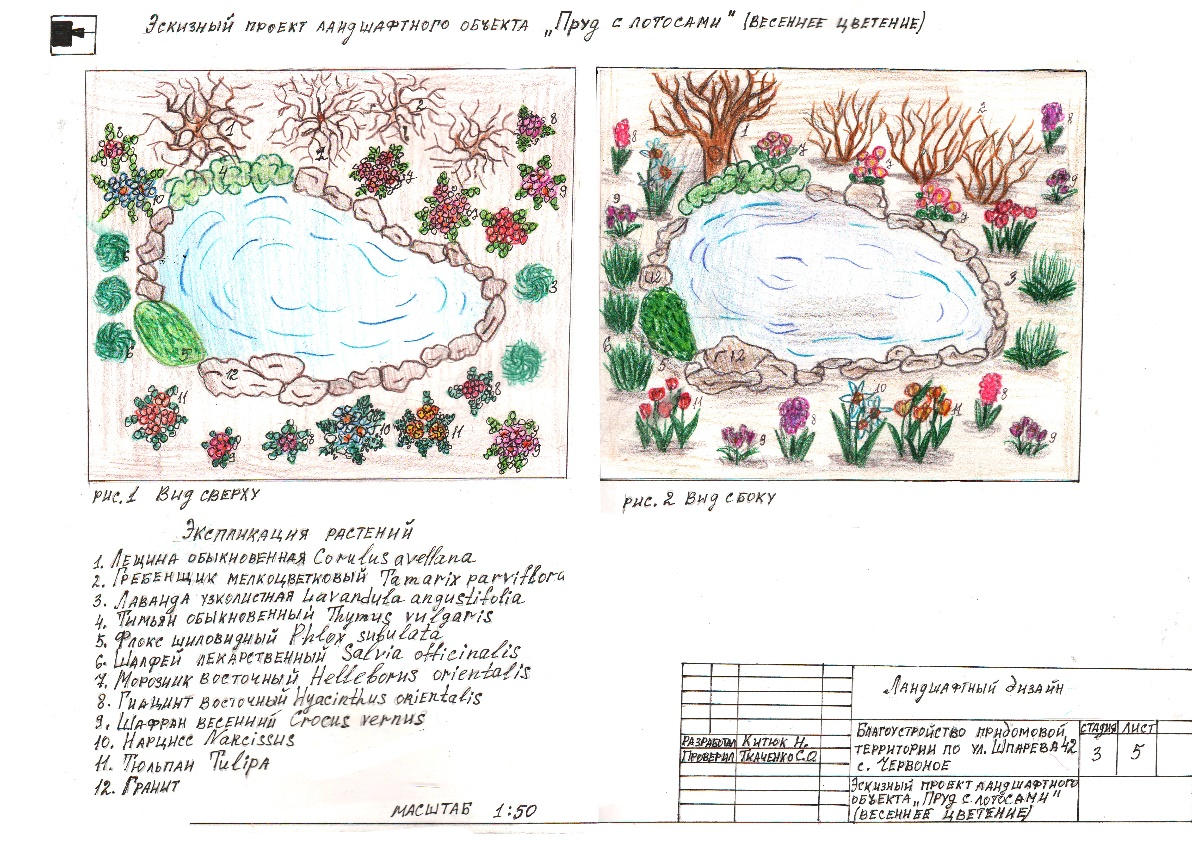 Эскизный проект ландшафтного объекта „Пруд с лотосами" (весеннее цветение)
рис. 1 Вид сверху
рис. 2 Вид сбоку
Экспликация растений
1. Лещина обыкновенная Corulus avellana
2. Гребенщик мелкоцветковый Tamarix parviflora
3. Лаванда узколистная Lavandula angustifolia
4. Тимьян обыкновенный Thymus vulgaris
5. Флокс шиловидный Phlox subulata
6. Шалфей лекарственный Salvia officinalis
7. Морозник восточный Helleborus orientalis
8. Гиацинт восточный Hyacinthus orientalis
9. Шафран весенний Crocus vernus
10. Нарцисс Narcissus
11. Тюльпан Tulipa
12. Гранит
Масштаб 1:50
Ландшафтный дизайн
Разработал Китюк Н.
Проверил Ткаченко С.О.
Благоустройство придомовой
территории по ул. Шпарева 42
с. Червоное
стадия лист
3 5
Эскизный проект ландшафтного
объекта „Пруд с лотосами"
(весеннее цветение)